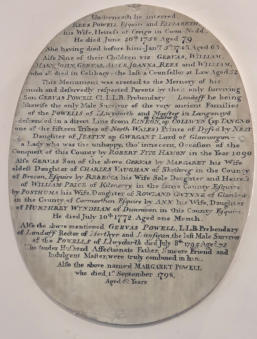 Underneath he interred
REES POWELL Esquire and ELIZABETH
his Wife, Heiress of Craig in Coom Nedd
He died June 28th 1738 Aged 79
She having died before him Jany 3rd 1743 63
Also Nine of their Children viz GERVAS, WILLIAM,
MARY, JOHN, GERVAS, ALICE, JOANNA, REES and WILLIAM,
who all died in Celibacy the last a Counsellor at Law Aged 52
This Monument was erected to the Memory of his
much and deservedly respected Parents by their only surviving
Son GERVAS POWELL Cl. L.L.B. Prebendary of Landaff he being
likewise the only Male Survivor of the very ancient Families
of the POWELLS of Llwynworth and
descended in a direct Line from
one of the fifteen Tribes of North WALES Prince of Dyfed by NEST
Daughter of JUSTIN ap GWRGANT Lord of Glamorgan
a Lady who was the unhappy, tho' innocent, Occasion of the
Conquest of this County by ROBERT FITZ HAMON in the Year 1090
Also GERVAS Son of the above GERVAS by MARGARET his Wife
eldest Daughter of CHARLES VAUGHAN of Skethrog in the County
of Brecon, Esquire by REBECCA his Wife Sole Daughter and Heiress
of WILLIAM PRICE of in the same County Esquire
by his Wife, Daughter of ROWLAND GWYNNE of
in the County of Carmarthen Esquire by ANN his Wife, Daughter
of HUMPHREY WYNDHAM of Dunraven in this County Esquire
He died July 10th 1772 Aged one Month.
Also the above mentioned GERVAS POWELL, L.L.B. Prebendary
of Landaff Rector of Merthyr and the last Male Survivor
of the POWELLS of Llwydarth died July 8th 1795 Aged
The tender Husband Affectionate Father, Sincere Friend and
Indulgent Master, were truly combined in him.
Also the above named MARGARET POWELL
who died 1st September 1798.
Aged Years